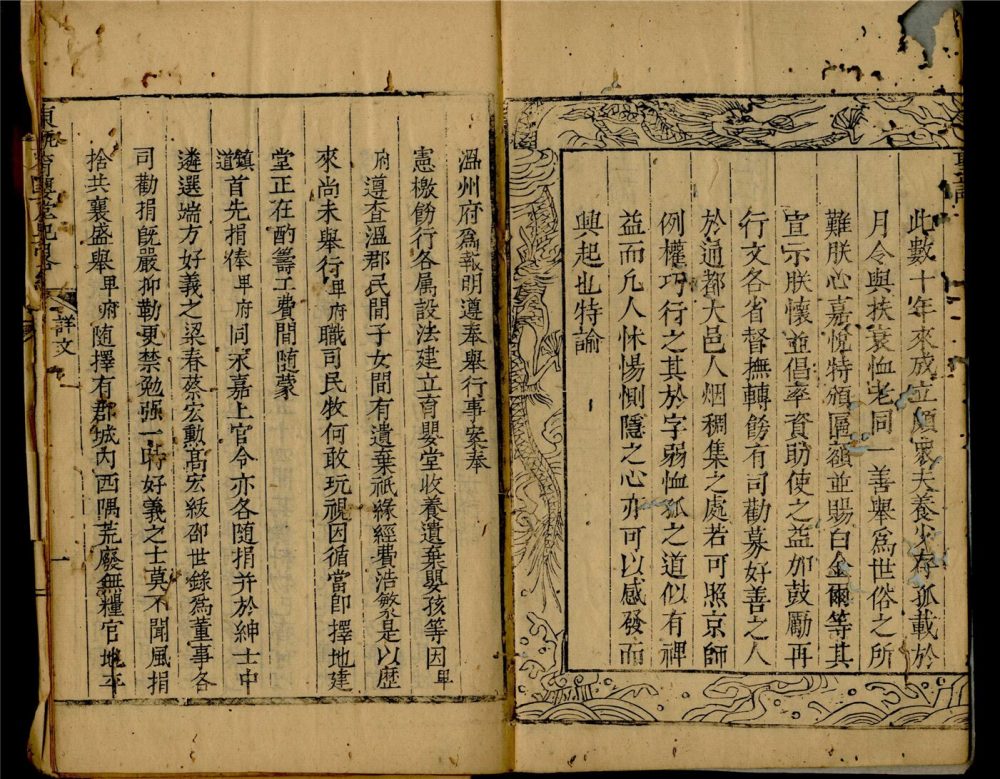 此數十年來成立頗衆夫養少存孤載於
月令與扶衰恤老同一善舉爲世俗之所
難朕心嘉悅特頒匾額並賜白金爾等其
宣示朕懷並倡率資助使之益加鼓勵再
行文各省督撫轉飭有司勸募好善之人
於通都大邑人烟稠集之處若可照京師
例權巧行之其於字弱恤孤之道似有裨
益而凡人怵惕惻隱之心亦可以感發而
興起也特諭
溫州府爲報明遵奉舉行事案奉
憲檄飭行各属設法建立育嬰堂收養遺棄嬰孩等因卑
府遵查溫郡民間子女間有遺棄祇緣經費浩繁是以歷
來尚未舉行卑府職司民牧何敢玩視因循當卽擇地建
堂正在酌籌工費間随蒙
鎮道首先捐俸卑府同永嘉上官令亦各随捐并於紳士中
遴選端方好義之梁春蔡宏勲髙宏紱邵世錄爲董事各
司勸捐旣嚴抑勒更禁勉强一時好義之士莫不聞風捐
捨共襄盛舉卑府随擇有郡城內西隅荒廢無糧官地
東甌育嬰堂
詳文
一